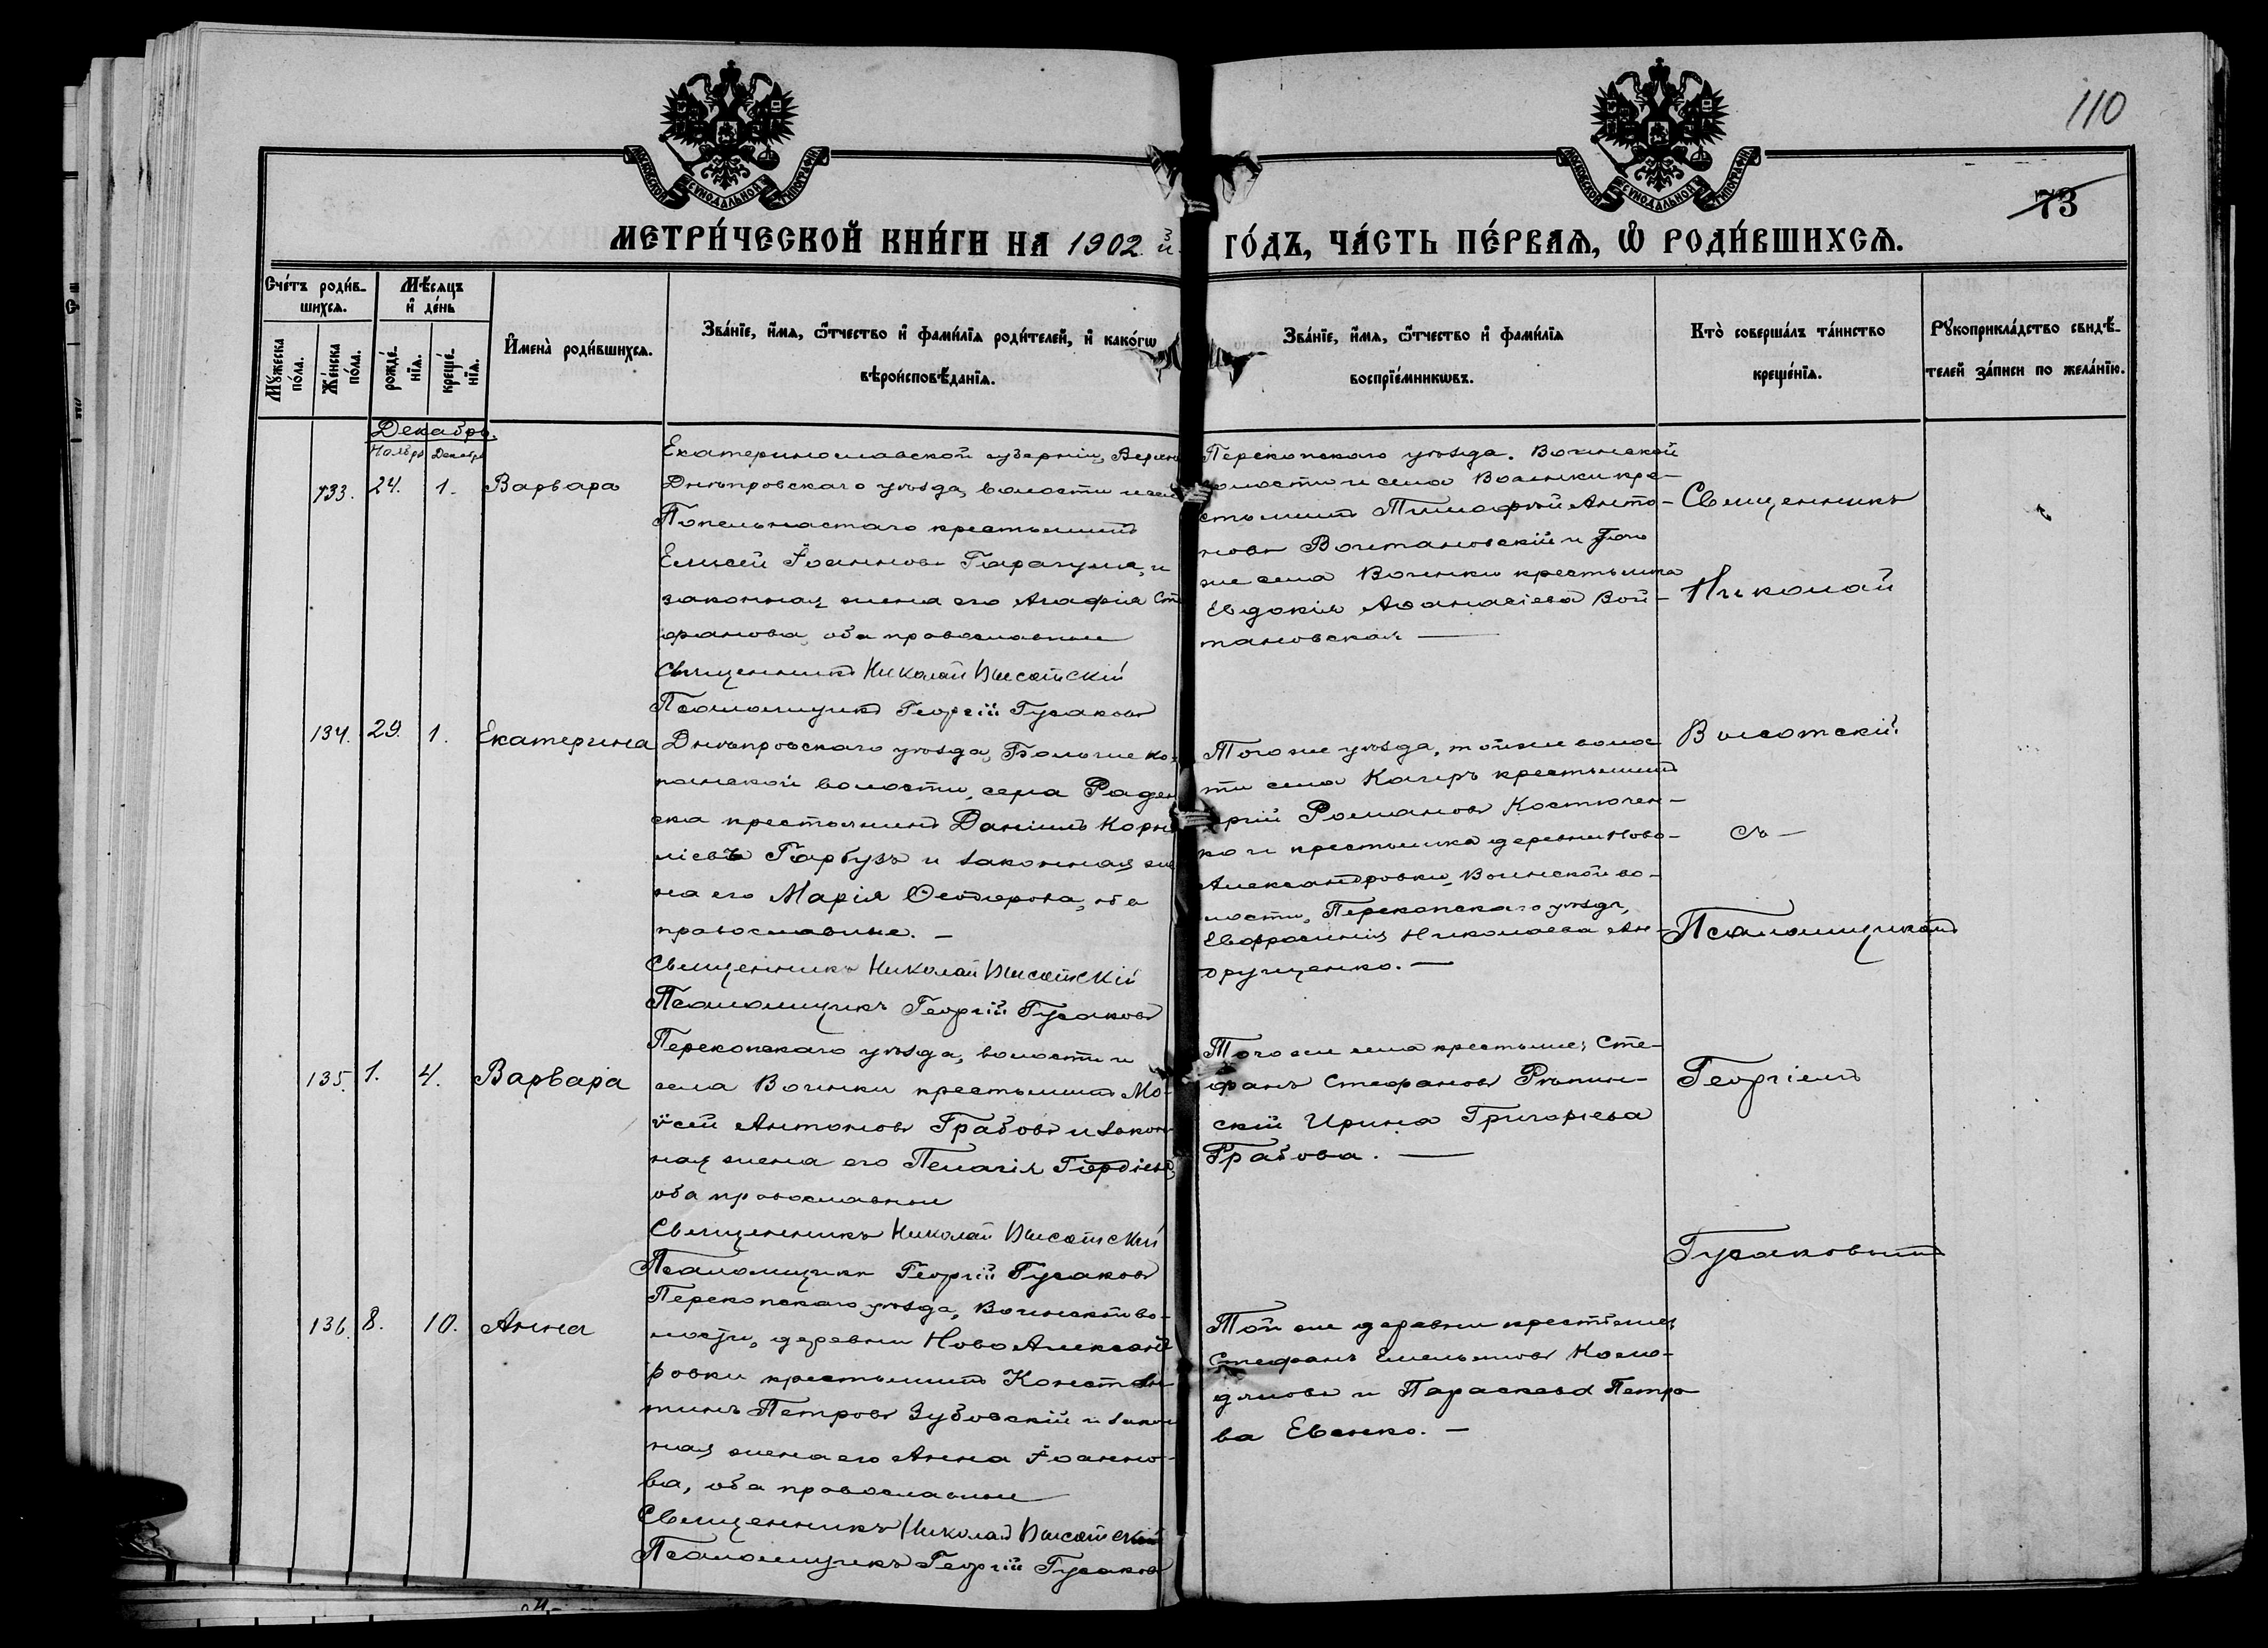 110
73
МОСКОВСКОЙ СѴНОДАЛЬНОЙ ТИПОГРАФІИ
МОСКОВСКОЙ СѴНОДАЛЬНОЙ ТИПОГРАФІИ
МЕТРИ́ЧЕСКОЙ КНИ́ГИ НА 1902й
ГО́ДЪ, ЧА́СТЬ ПЕ́РВАЯ, Ѡ҆ РОДИ́ВШИХСѦ.
Сче́тъ роди́в-
шихсѧ.
Мꙋ́жеска по́ла.
Же́нска по́ла.
Мѣ́сѧцъ
и҆ де́нь
рожде́-
нїѧ.
креще́-
нїѧ.
И҆мена̀ роди́вшихсѧ.
Зва́нїе, и҆́мѧ, ѻ҆́тчество и҆ фами́лїѧ роди́телей, и҆ како́гѡ
вѣроисповѣ́данїѧ.
Зва́нїе, и҆́мѧ, ѻ҆́тчество и҆ фами́лїѧ
воспрїе́мникѡвъ.
Кто̀ соверша́лъ та́инство
креще́нїѧ.
Рꙋкоприкла́дство свидѣ́-
телей за́писи по жела́нїю.
Декабрь.
Ноябрь Декабрь
133. 24. 1. Варвара
Екатеринославской губерніи, Верхне
Днѣпровскаго уѣзда, волости и села
Попельнастаго крестьянинъ
Елисей Іоанновъ Гарагуля, и
законная жена его Агафія Сте
фанова, оба православные
Священникъ Николай Высотскій
Псаломщикъ Георгій Гусаковъ
Перекопскаго уѣзда, Воинской
волости и села Воинки кре-
стьянинъ Тимофей Анто-
новъ Войтановскій и того
же села Воинки крестьянка
Евдокія Аѳанасіева Вой-
тановская —
134. 29. 1. Екатерина
Днѣпровскаго уѣзда, Больше Ко-
панской волости, села Раден
ска крестьянинъ Даніилъ Корни
ліевъ Гарбузъ и законная же
на его Марія Ѳеодорова, оба
православные. —
Священникъ Николай Высотскій
Псаломщикъ Георгій Гусаковъ
Того же уѣзда, той же волос
ти села Кагеръ крестьянинъ
Романовъ Костючен-
ко и крестьянка деревни Ново-
Александровки, Воинской во-
лости, Перекопскаго уѣзда,
Евфросинія Николаева Ан-
друщенко. —
135. 1. 4. Варвара
Перекопскаго уѣзда, волости и
села Воинки крестьянинъ Мо-
ѵсей Антоновъ Грабовъ и закон
ная жена его Пелагія Гордіева,
оба православные
Священникъ Николай Высотскій
Псаломщикъ Георгій Гусаковъ
Того же села крестьяне: Сте-
фанъ Стефановъ Рѣпин-
скій Ирина Григоріева
Грабова. —
136. 8. 10. Анна
Перекопскаго уѣзда, Воинской во-
лости, деревни Ново Александ
ровки крестьянинъ Констан
тинъ Петровъ Зубовскій и закон
ная жена его Анна Іоанно-
ва, оба православные
Священникъ Николай Высотскій
Псаломщикъ Георгій Гусаковъ
Той же деревни крестьяне
Стефанъ Емельяновъ Коло-
дяновъ и Параскева Петро
ва Евенко. —
Священникъ
Николай
Высотскій
съ —
Псаломщикомъ
Георгіемъ
Гусаковымъ